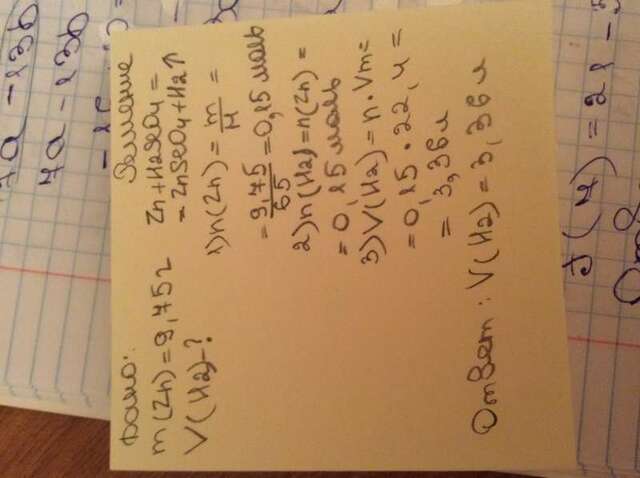 7a - 13b
7a - 13b
Дано:
Решение
m(Zn) = 9,75г
V(H2)-?
Zn + H2SeO4 =
= ZnSeO4 + H2↑
1) n(Zn) = m/M =
= 9,75/65 = 0,15 моль
2) n(H2) = n(Zn) =
= 0,15 моль
3) V(H2) = n · Vm =
= 0,15 · 22,4 =
= 3,36 л
Ответ: V(H2) = 3,36 л
f(7) = 21 -